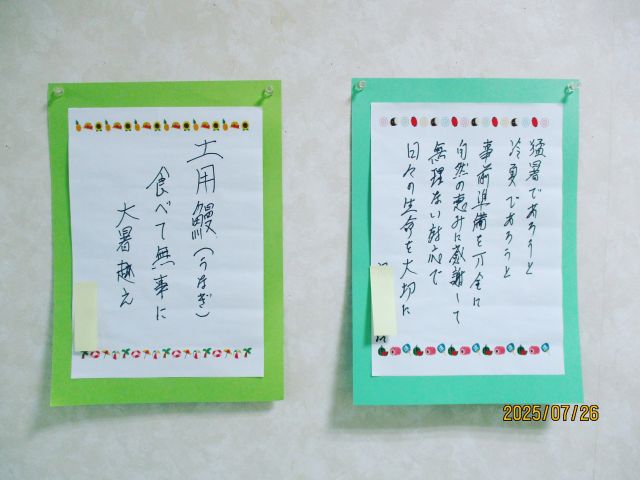 土用鰻(うなぎ)
食べて無事に
大暑越え
猛暑であろうと
冷夏であろうと
事前準備を万全に
自然の恵みに感謝して
無理ない対応で
日々の生命を大切に
M
2025/07/26